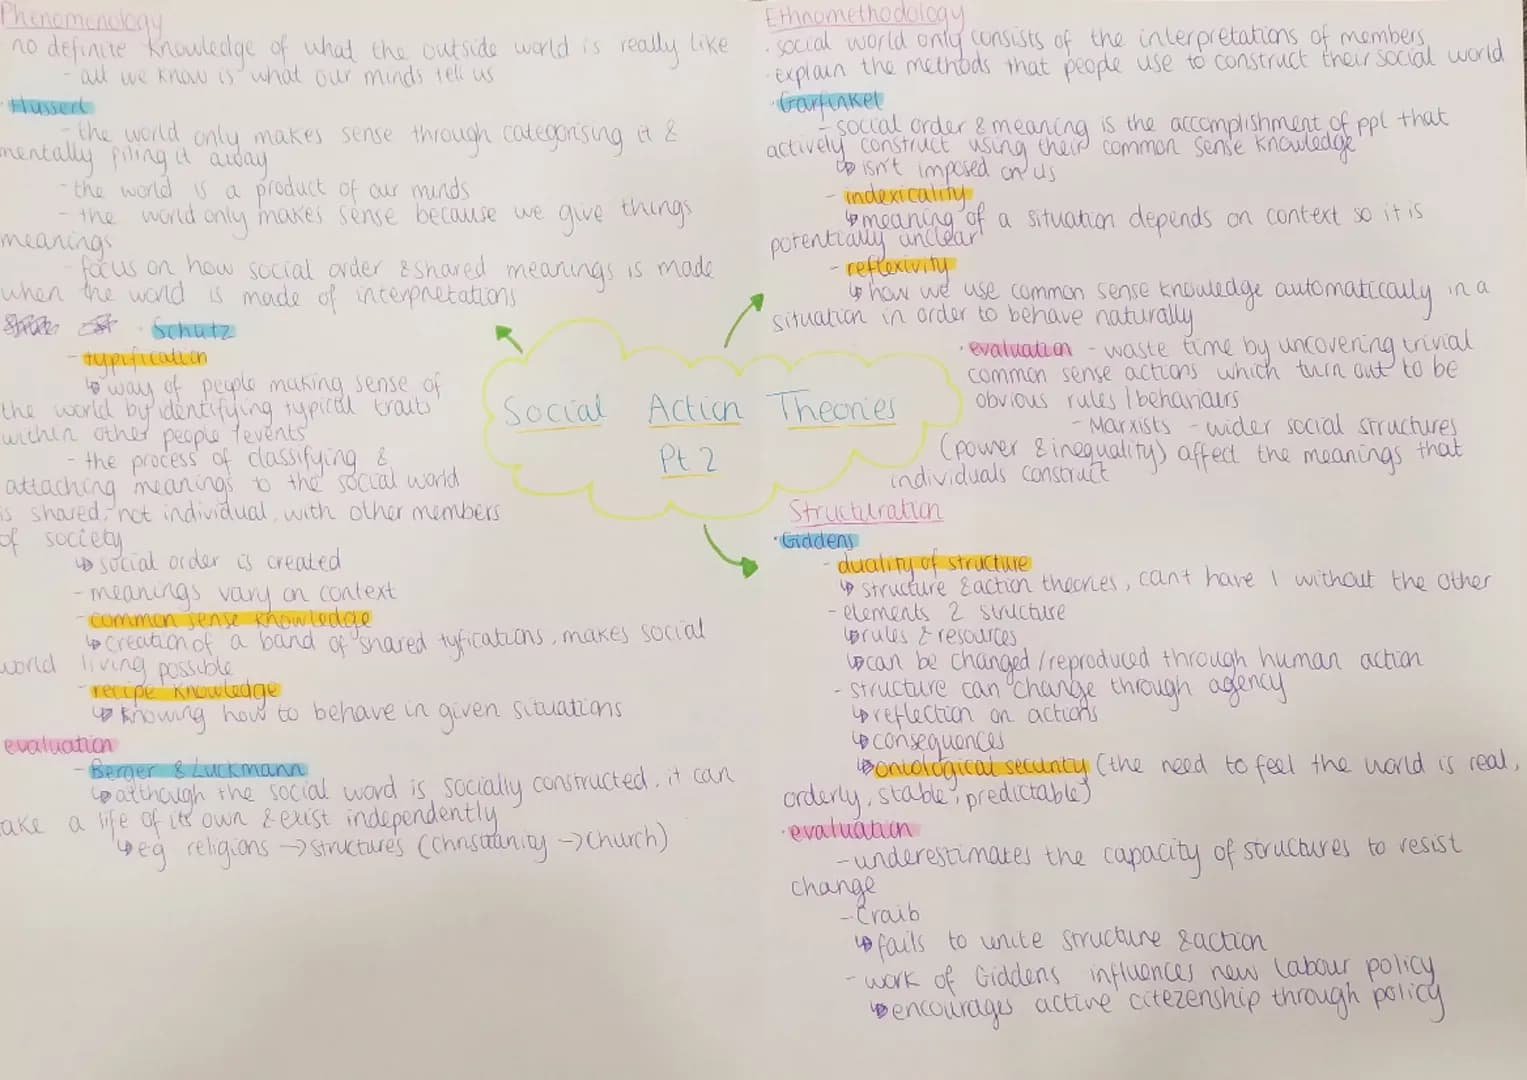 Phenomenology
no definite knowledge of what the outside world is really like
- all we know is what our minds tell us
· Husserl
- the world only makes sense through categorising it &
mentally filing it away
- the world is a product of our minds
- the world only makes sense because we give things
meanings
- focus on how social order & shared meanings is made
when the world is made of interpretations
· Schutz
- typification
↳ way of people making sense of
the world by identifying typical traits
within other people / events
- the process of classifying &
attaching meanings to the social world
is shared, not individual, with other members
of society
↳ social order is created
- meanings vary on context
- common sense knowledge
↳ creation of a band of shared tyfications, makes social
world living possible
- recipe knowledge
↳ knowing how to behave in given situations
evaluation
- Berger & Luckmann
↳ although the social word is socially constructed, it can
take a life of its own & exist independently
↳ eg religions → structures (christianity → church)
Social Action Theories
Pt 2
Ethnomethodology
· social world only consists of the interpretations of members
· explain the methods that people use to construct their social world
· Garfinkel
- social order & meaning is the accomplishment of ppl that
actively construct using their common sense knowledge
↳ isn't imposed on us
- indexicality
↳ meaning of a situation depends on context so it is
potentially unclear
- reflexivity
↳ how we use common sense knowledge automatically in a
situation in order to behave naturally
· evaluation - waste time by uncovering trivial
common sense actions which turn out to be
obvious rules / behaviours
- Marxists - wider social structures
(power & inequality) affect the meanings that
individuals construct
Structuration
· Giddens
- duality of structure
↳ structure & action theories, cant have 1 without the other
- elements 2 structure
↳ rules & resources
↳ can be changed / reproduced through human action
- structure can change through agency
↳ reflection on actions
↳ consequences
↳ ontological security (the need to feel the world is real,
orderly, stable, predictable)
· evaluation
- underestimates the capacity of structures to resist
change
- Craib
↳ fails to unite structure & action
- work of Giddens influences new labour policy
↳ encourages active citezenship through policy